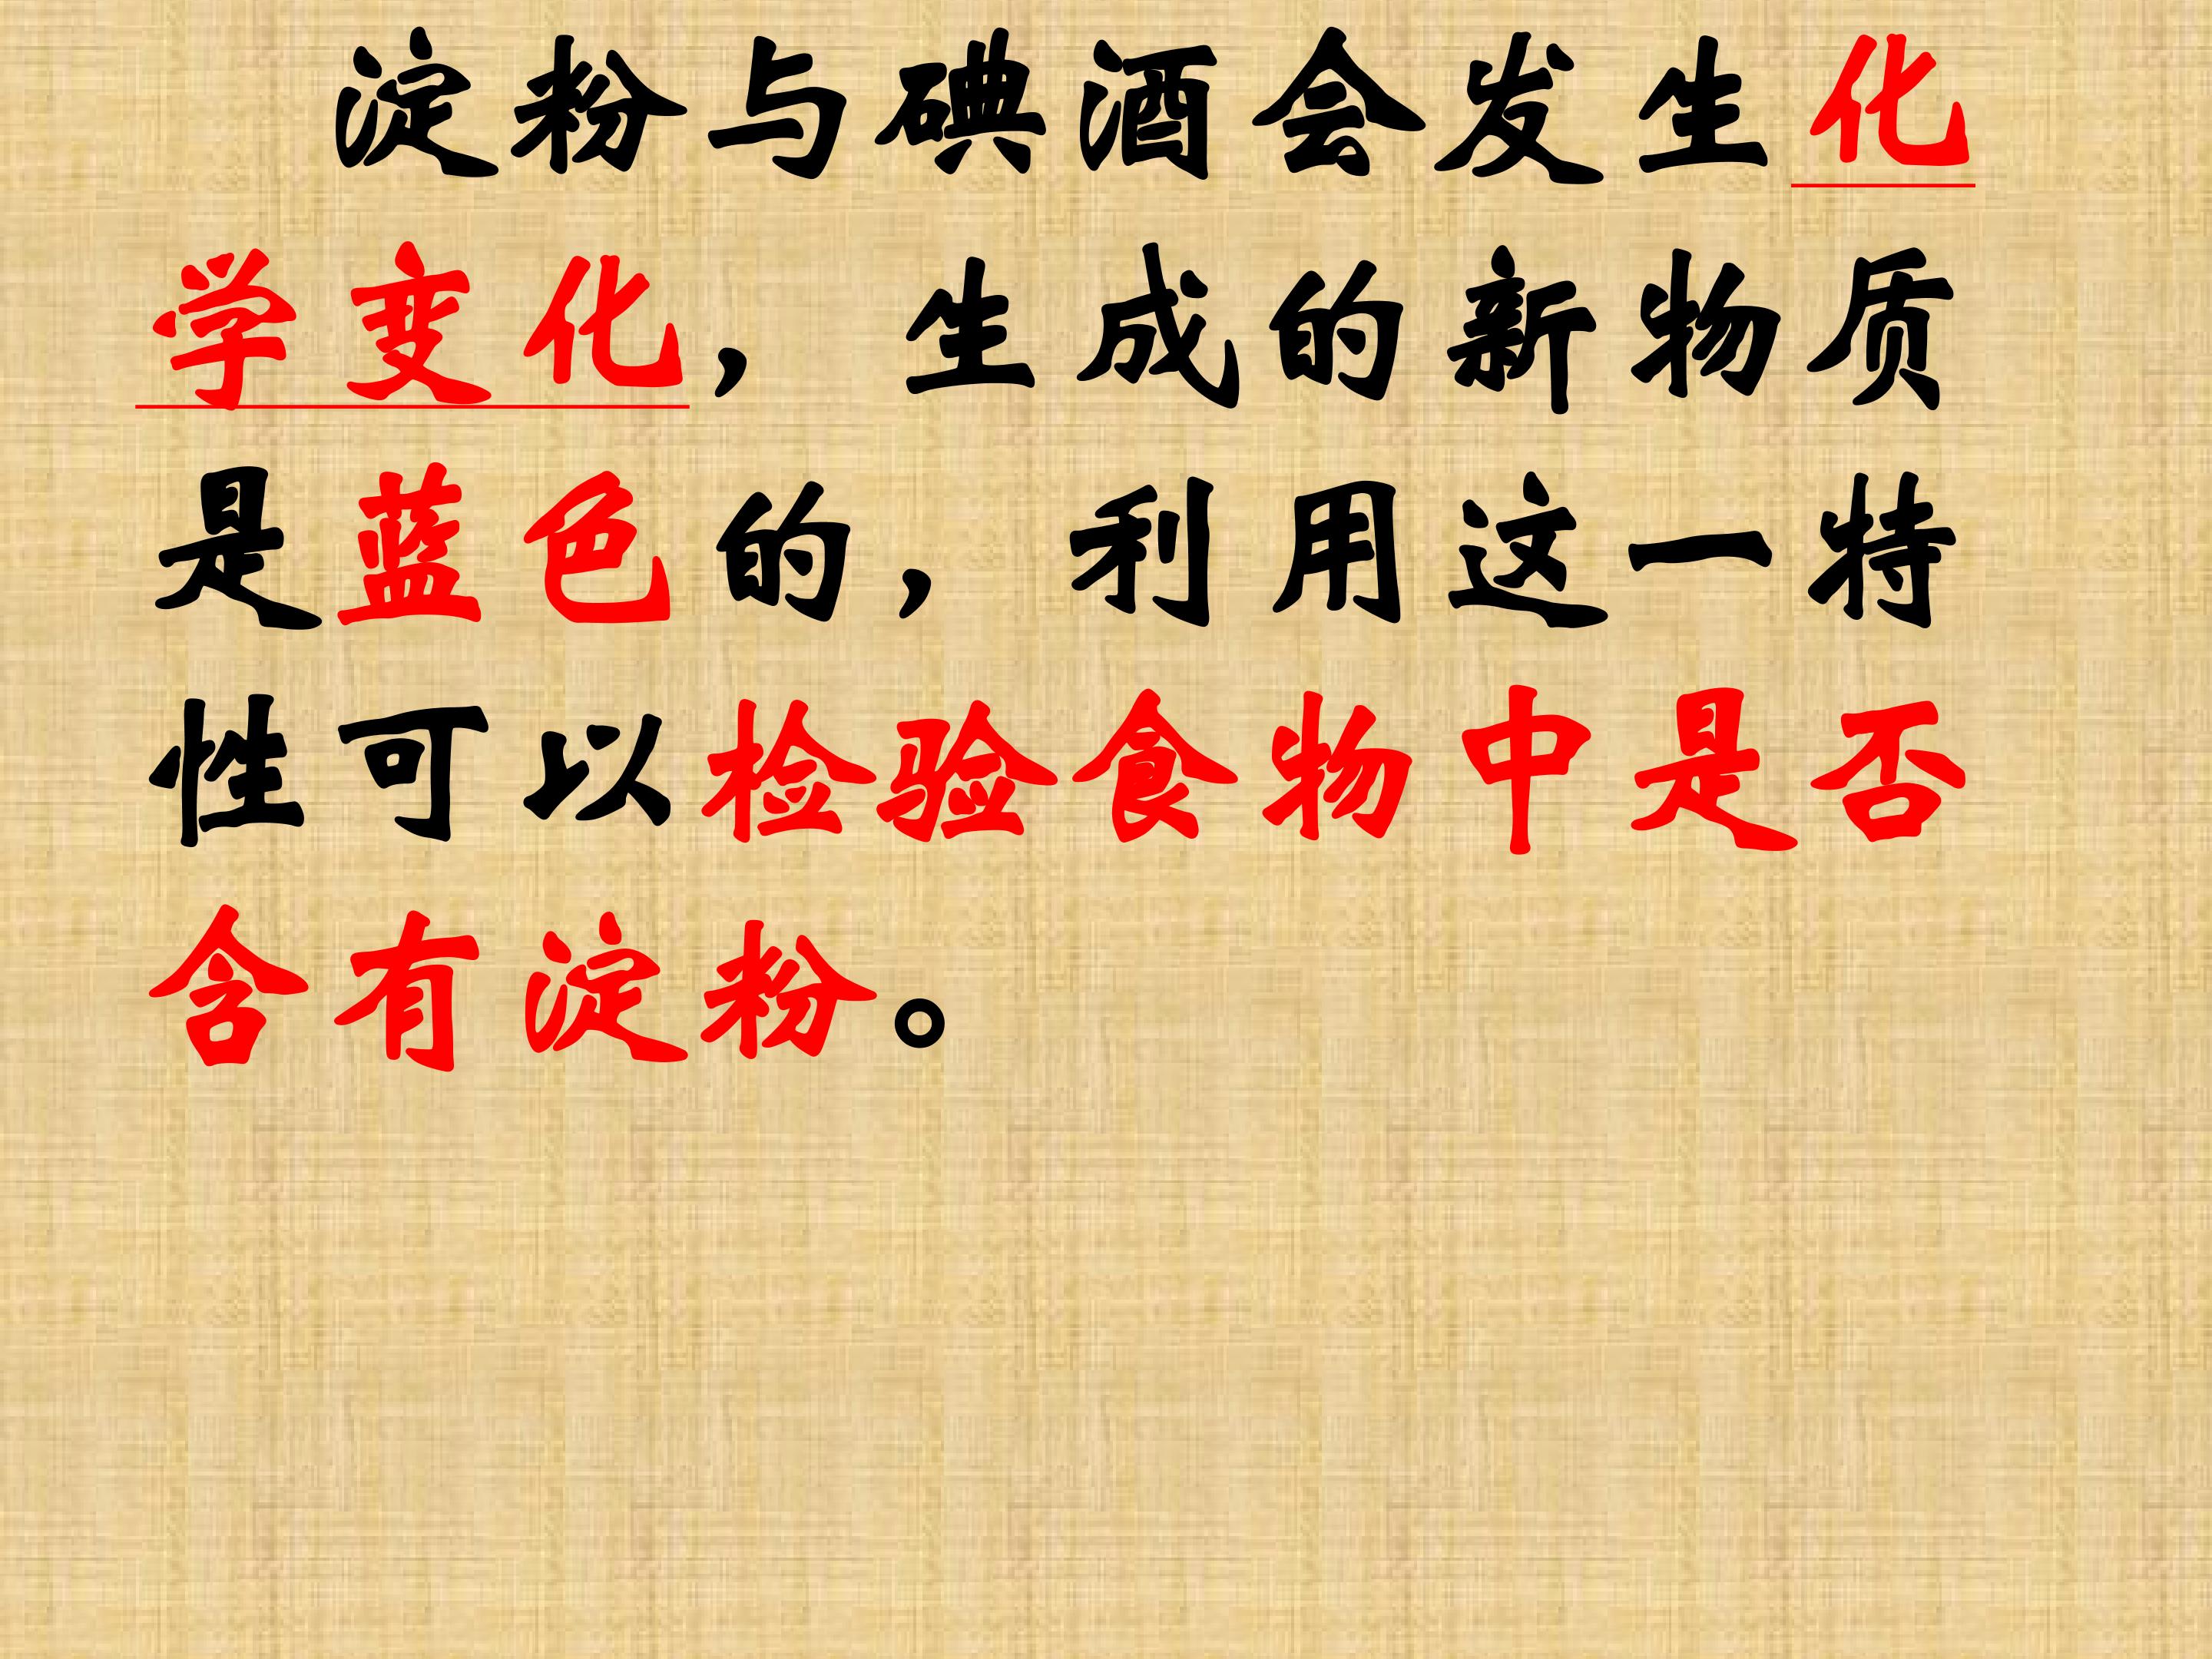 淀粉与碘酒会发生化
学变化，生成的新物质
是蓝色的，利用这一特
性可以检验食物中是否
含有淀粉。